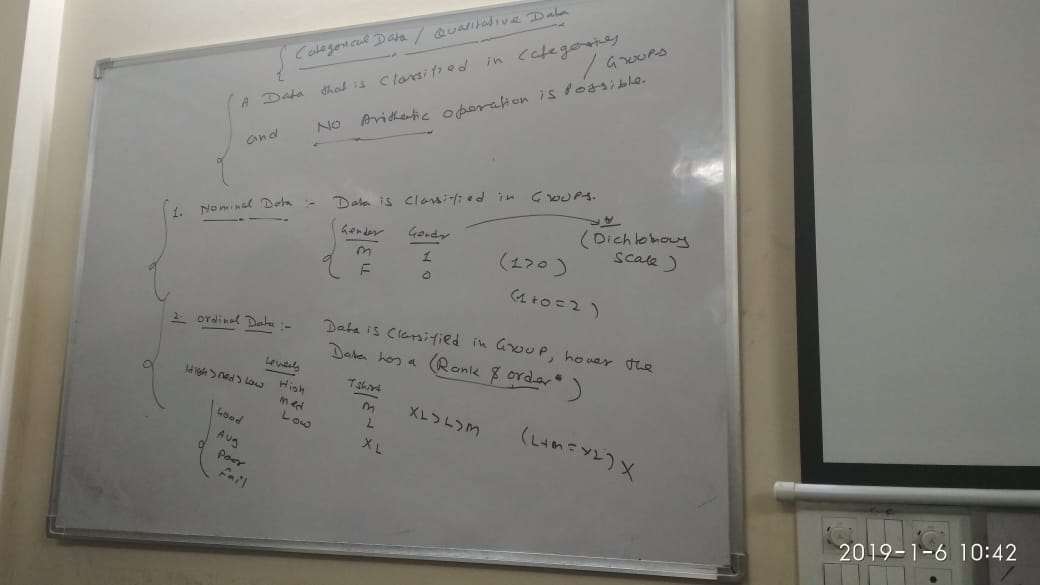 Categorical Data / Qualitative Data
A Data that is Classified in Categories / Groups
and NO Arithetic operation is Possible.
1. Nominal Data :- Data is Classified in Groups.
Gender Gender
M 1
F 0
(Dichtomous
Scale)
(1>0)
(1+0=2)
2. Ordinal Data :- Data is Classified in Group, hover the
Data has a (Rank & order*)
Levels
High>med>Low High
med
Low
Tshirt
M
L
XL
XL>L>M
(L+M=XL) X
Good
Avg
Poor
Fail
2019-1-6 10:42